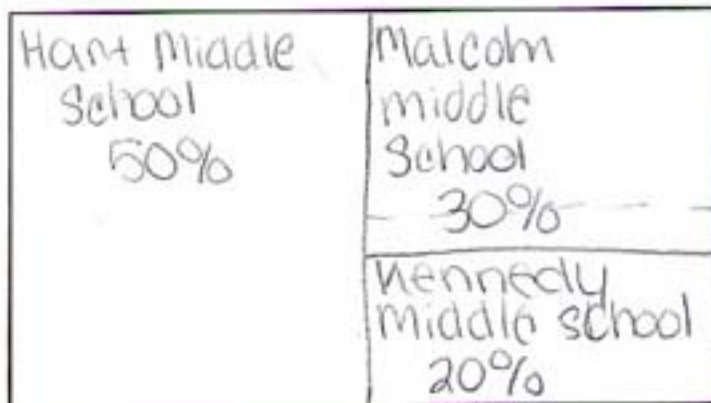 Hart Middle
School
50%
Malcolm
middle
School
30%
Kennedy
Middle school
20%